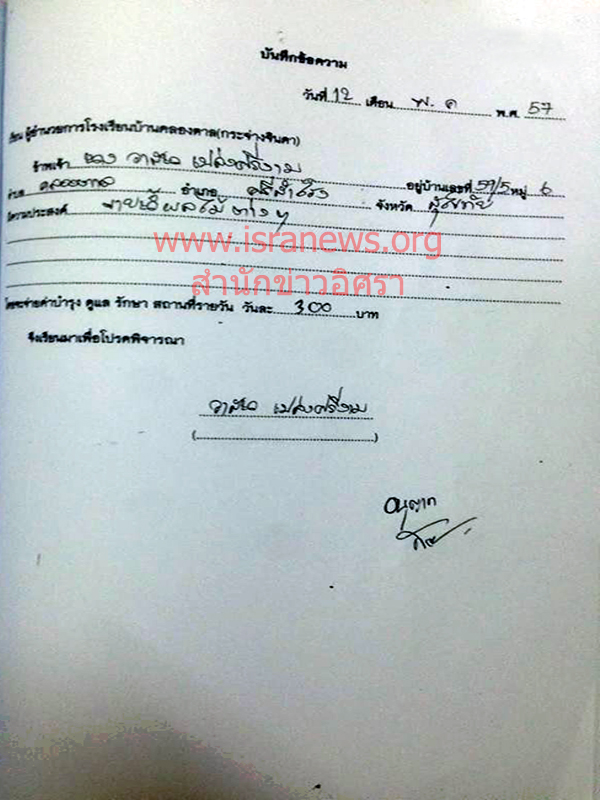 บันทึกข้อความ
วันที่ 12 เดือน พ.ค พ.ศ. 57
เรียน ผู้อำนวยการโรงเรียนบ้านคลองตาล(กระจ่างจินดา)
ข้าพเจ้า เปล่งศรีงาม อยู่บ้านเลขที่ 59/5 หมู่ 6
ตำบล คลองตาล อำเภอ ศรีสำโรง จังหวัด สุโขทัย
มีความประสงค์ ขายน้ำผลไม้ต่างๆ
www.isranews.org
สำนักข่าวอิศรา
โดยจะจ่ายค่าบำรุง ดูแล รักษา สถานที่รายวัน วันละ 300 บาท
จึงเรียนมาเพื่อโปรดพิจารณา
เปล่งศรีงาม
(....................)
อนุญาต